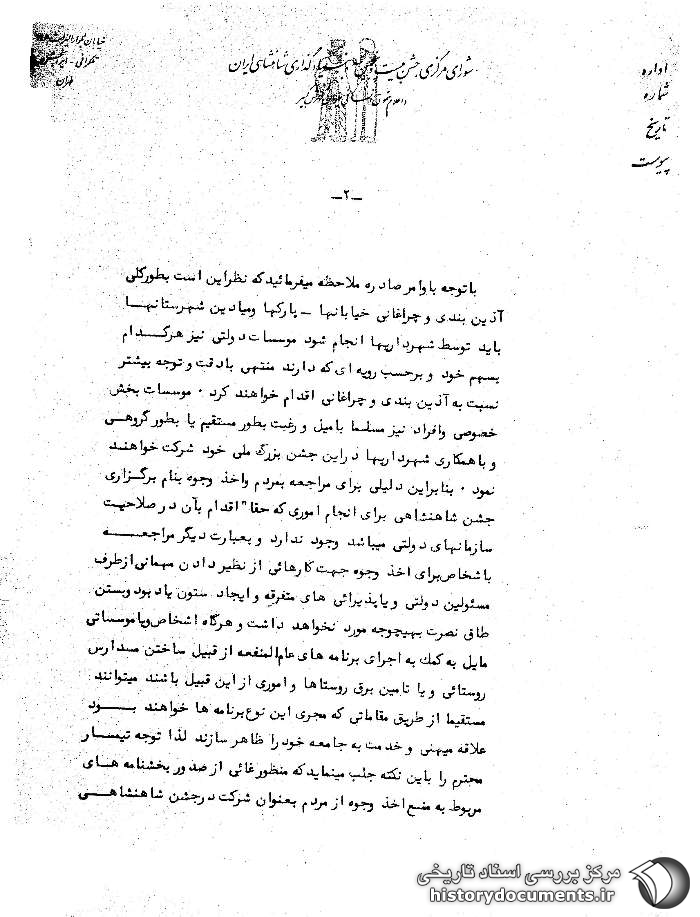 شورای مرکزی جشن بیست و پنجمین سده بنیادگذاری شاهنشاهی ایران
اداره
شماره
تاریخ
پیوست
ـ۲ـ
باتوجه باوامر صادره ملاحظه میفرمائیدکه نظراین است بطورکلی
آذین بندی و چراغانی خیابانها ـ پارکها ومیادین شهرستانهـا
باید توسط شهرداریها انجام شود موسسات دولتی نیز هرکـدام
بسهم خود و برحسب رویه ای که دارند منتهی بادقت و توجه بیشتر
نسبت به آذین بندی و چراغانی اقدام خواهند کرد ۰ موسسات بخش
خصوصی وافراد نیز مسلما بامیل و رغبت بطور مستقیم یا بطورگروهـی
و باهمکاری شهرداریها دراین جشن بزرگ ملی خود شرکت خواهنـد
نمود ۰ بنابراین دلیلی برای مراجعه بمردم واخذ وجوه بنام برگزاری
جشن شاهنشاهی برای انجام اموری که حقا" اقدام بآن درصلاحیت
سازمانهای دولتی میباشد وجود ندارد و بعبارت دیگر مراجعـــه
باشخاص برای اخذ وجوه جهت کارهائی از نظیر دادن مهمانی ازطرف
مسئولین دولتی و یاپذیرائی های متفرقه و ایجاد ستون یادبود وبستن
طاق نصرت بهیچوجه مورد نخواهد داشت و هرگاه اشخاص ویاموسساتی
مایل به کمك به اجرای برنامه های عام‌المنفعه از قبیل ساختن مـدارس
روستائی و یا تامین برق روستاها و اموری از این قبیل باشند میتوانند
مستقیما از طریق مقاماتی که مجری این نوع برنامه ها خواهند بـــود
علاقه میهنی و خدمت به جامعه خود را ظاهر سازند لذا توجه تیمسـار
محترم را باین نکته جلب مینمایدکه منظورغائی از صدور بخشنامه هـای
مربوط به منع اخذ وجوه از مردم بعنوان شرکت درجشن شاهنشاهــی
مرکز بررسی اسناد تاریخی
historydocuments.ir